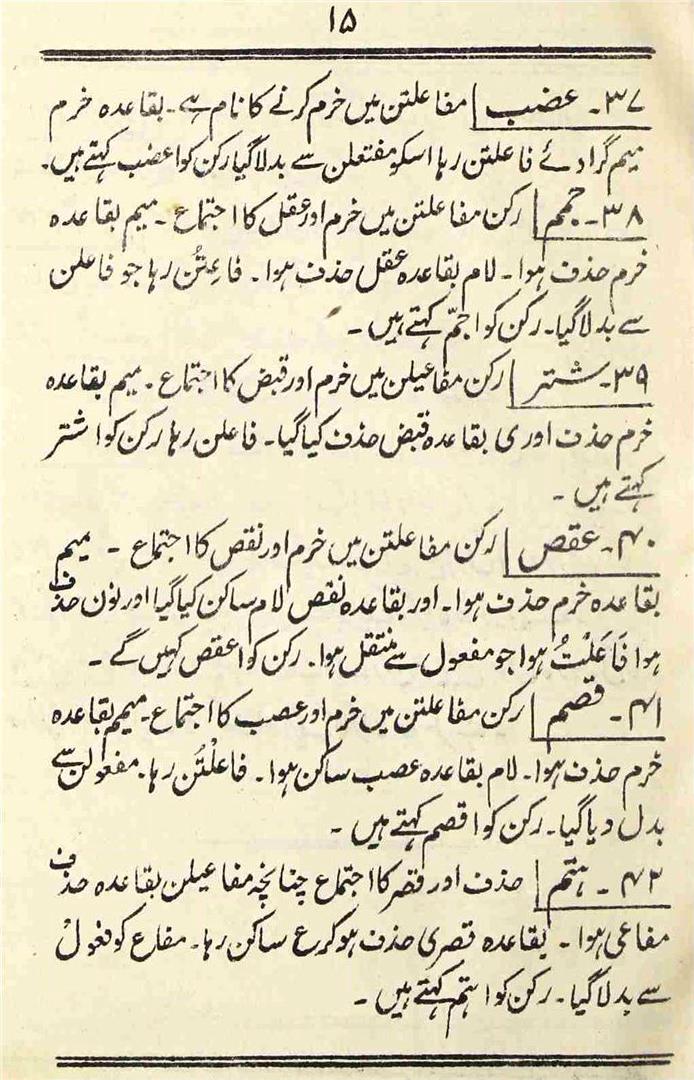 ۱۵
۳۷۔ عضب | مفاعلتن میں خرم کرنے کا نام ہے۔ بقاعدہ خرم
میم گرادئے فاعلتن رہا اسکو مفتعلن سے بدلا گیا رکن کو اعضب کہتے ہیں۔
۳۸۔ جمم | رکن مفاعلتن میں خرم اور عقل کا اجتماع ۔ میم بقاعدہ
خرم حذف ہوا۔ لام بقاعدہ عقل حذف ہوا۔ فاعِتُن رہا جو فاعلن
سے بدلا گیا۔ رکن کو اجمّ کہتے ہیں ۔
۳۹۔ شتر | رکن مفاعیلن میں خرم اور قبض کا اجتماع ۔ میم بقاعدہ
خرم حذف اور ی بقاعدہ قبض حذف کیا گیا۔ فاعلن رہا رکن کو اشتر
کہتے ہیں ۔
۴۰۔ عقص | رکن مفاعلتن میں خرم اور نقص کا اجتماع ۔ میم
بقاعدہ خرم حذف ہوا۔ اور بقاعدہ نقص لام ساکن کیا گیا اور نون حذف
ہوا فَاعَلْتُ ہوا جو مفعول سے منتقل ہوا۔ رکن کو اعقص کہیں گے ۔
۴۱۔ قصم | رکن مفاعلتن میں خرم اور عصب کا اجتماع۔ میم بقاعدہ
خرم حذف ہوا۔ لام بقاعدہ عصب ساکن ہوا۔ فاعلْتُن رہا۔ مفعولن سے
بدل دیا گیا۔ رکن کو اقصم کہتے ہیں ۔
۴۲ ۔ ہتم | حذف اور قصر کا اجتماع چنانچہ مفاعیلن بقاعدہ حذف
مفاعی ہوا ۔ بقاعدہ قصر ی حذف ہو کر ع ساکن رہا۔ مفاع کو فعولْ
سے بدلا گیا۔ رکن کو اہتم کہتے ہیں ۔